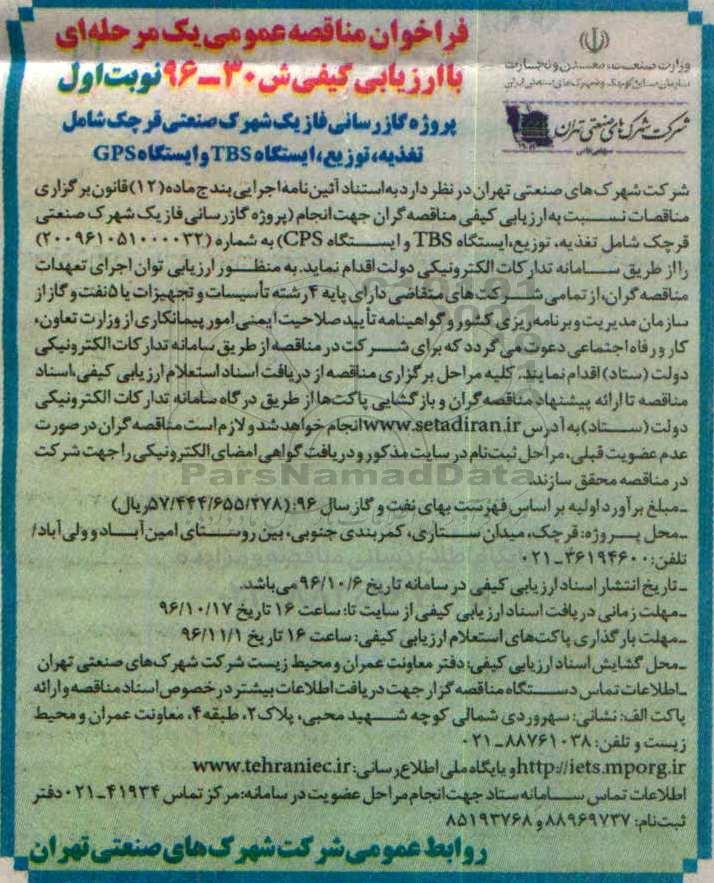 فراخوان مناقصه عمومی یک مرحله‌ای
با ارزیابی کیفی ش ۳۰-۹۶ نوبت اول
وزارت صنعت، معدن و تجارت
سازمان صنایع کوچک و شهرک‌های صنعتی ایران
شرکت شهرک‌های صنعتی تهران
پروژه گازرسانی فاز یک شهرک صنعتی قرچک شامل
تغذیه، توزیع، ایستگاه TBS و ایستگاه GPS
شرکت شهرک‌های صنعتی تهران در نظر دارد به استناد آئین نامه اجرایی بند ج ماده (۱۲) قانون برگزاری
مناقصات نسبت به ارزیابی کیفی مناقصه گران جهت انجام (پروژه گازرسانی فاز یک شهرک صنعتی
قرچک شامل تغذیه، توزیع، ایستگاه TBS و ایستگاه CPS) به شماره (۲۰۰۹۶۱۰۵۱۰۰۰۰۳۲)
را از طریق سامانه تدارکات الکترونیکی دولت اقدام نماید. به منظور ارزیابی توان اجرای تعهدات
مناقصه گران، از تمامی شرکت‌های متقاضی دارای پایه ۴ رشته تأسیسات و تجهیزات یا ۵ نفت و گاز از
سازمان مدیریت و برنامه ریزی کشور و گواهینامه تأیید صلاحیت ایمنی امور پیمانکاری از وزارت تعاون،
کار و رفاه اجتماعی دعوت می گردد که برای شرکت در مناقصه از طریق سامانه تدارکات الکترونیکی
دولت (ستاد) اقدام نمایند. کلیه مراحل برگزاری مناقصه از دریافت اسناد استعلام ارزیابی کیفی، اسناد
مناقصه تا ارائه پیشنهاد مناقصه گران و بازگشایی پاکت‌ها از طریق درگاه سامانه تدارکات الکترونیکی
دولت (ستاد) به آدرس www.setadiran.ir انجام خواهد شد و لازم است مناقصه گران در صورت
عدم عضویت قبلی، مراحل ثبت نام در سایت مذکور و دریافت گواهی امضای الکترونیکی را جهت شرکت
در مناقصه محقق سازند.
ParsNamadData
-مبلغ برآورد اولیه بر اساس فهرست بهای نفت و گاز سال ۹۶: (۵۷/۴۴۴/۶۵۵/۲۷۸ریال)
-محل پروژه: قرچک، میدان ستاری، کمربندی جنوبی، بین روستای امین آباد و ولی آباد/
تلفن: ۳۶۱۹۴۶۰۰-۰۲۱
-تاریخ انتشار اسناد ارزیابی کیفی در سامانه تاریخ ۹۶/۱۰/۶ می باشد.
-مهلت زمانی دریافت اسناد ارزیابی کیفی از سایت تا: ساعت ۱۶ تاریخ ۹۶/۱۰/۱۷
-مهلت بارگذاری پاکت‌های استعلام ارزیابی کیفی: ساعت ۱۶ تاریخ ۹۶/۱۱/۱
-محل گشایش اسناد ارزیابی کیفی: دفتر معاونت عمران و محیط زیست شرکت شهرک‌های صنعتی تهران
-اطلاعات تماس دستگاه مناقصه گزار جهت دریافت اطلاعات بیشتر در خصوص اسناد مناقصه و ارائه
پاکت الف: نشانی: سهروردی شمالی کوچه شهید محبی، پلاک ۲، طبقه ۴، معاونت عمران و محیط
زیست و تلفن: ۸۸۷۶۱۰۳۸-۰۲۱
http://iets.mporg.ir و پایگاه ملی اطلاع رسانی: www.tehraniec.ir
اطلاعات تماس سامانه ستاد جهت انجام مراحل عضویت در سامانه: مرکز تماس ۴۱۹۳۴-۰۲۱ دفتر
ثبت نام: ۸۸۹۶۹۷۳۷ و ۸۵۱۹۳۷۶۸
روابط عمومی شرکت شهرک‌های صنعتی تهران